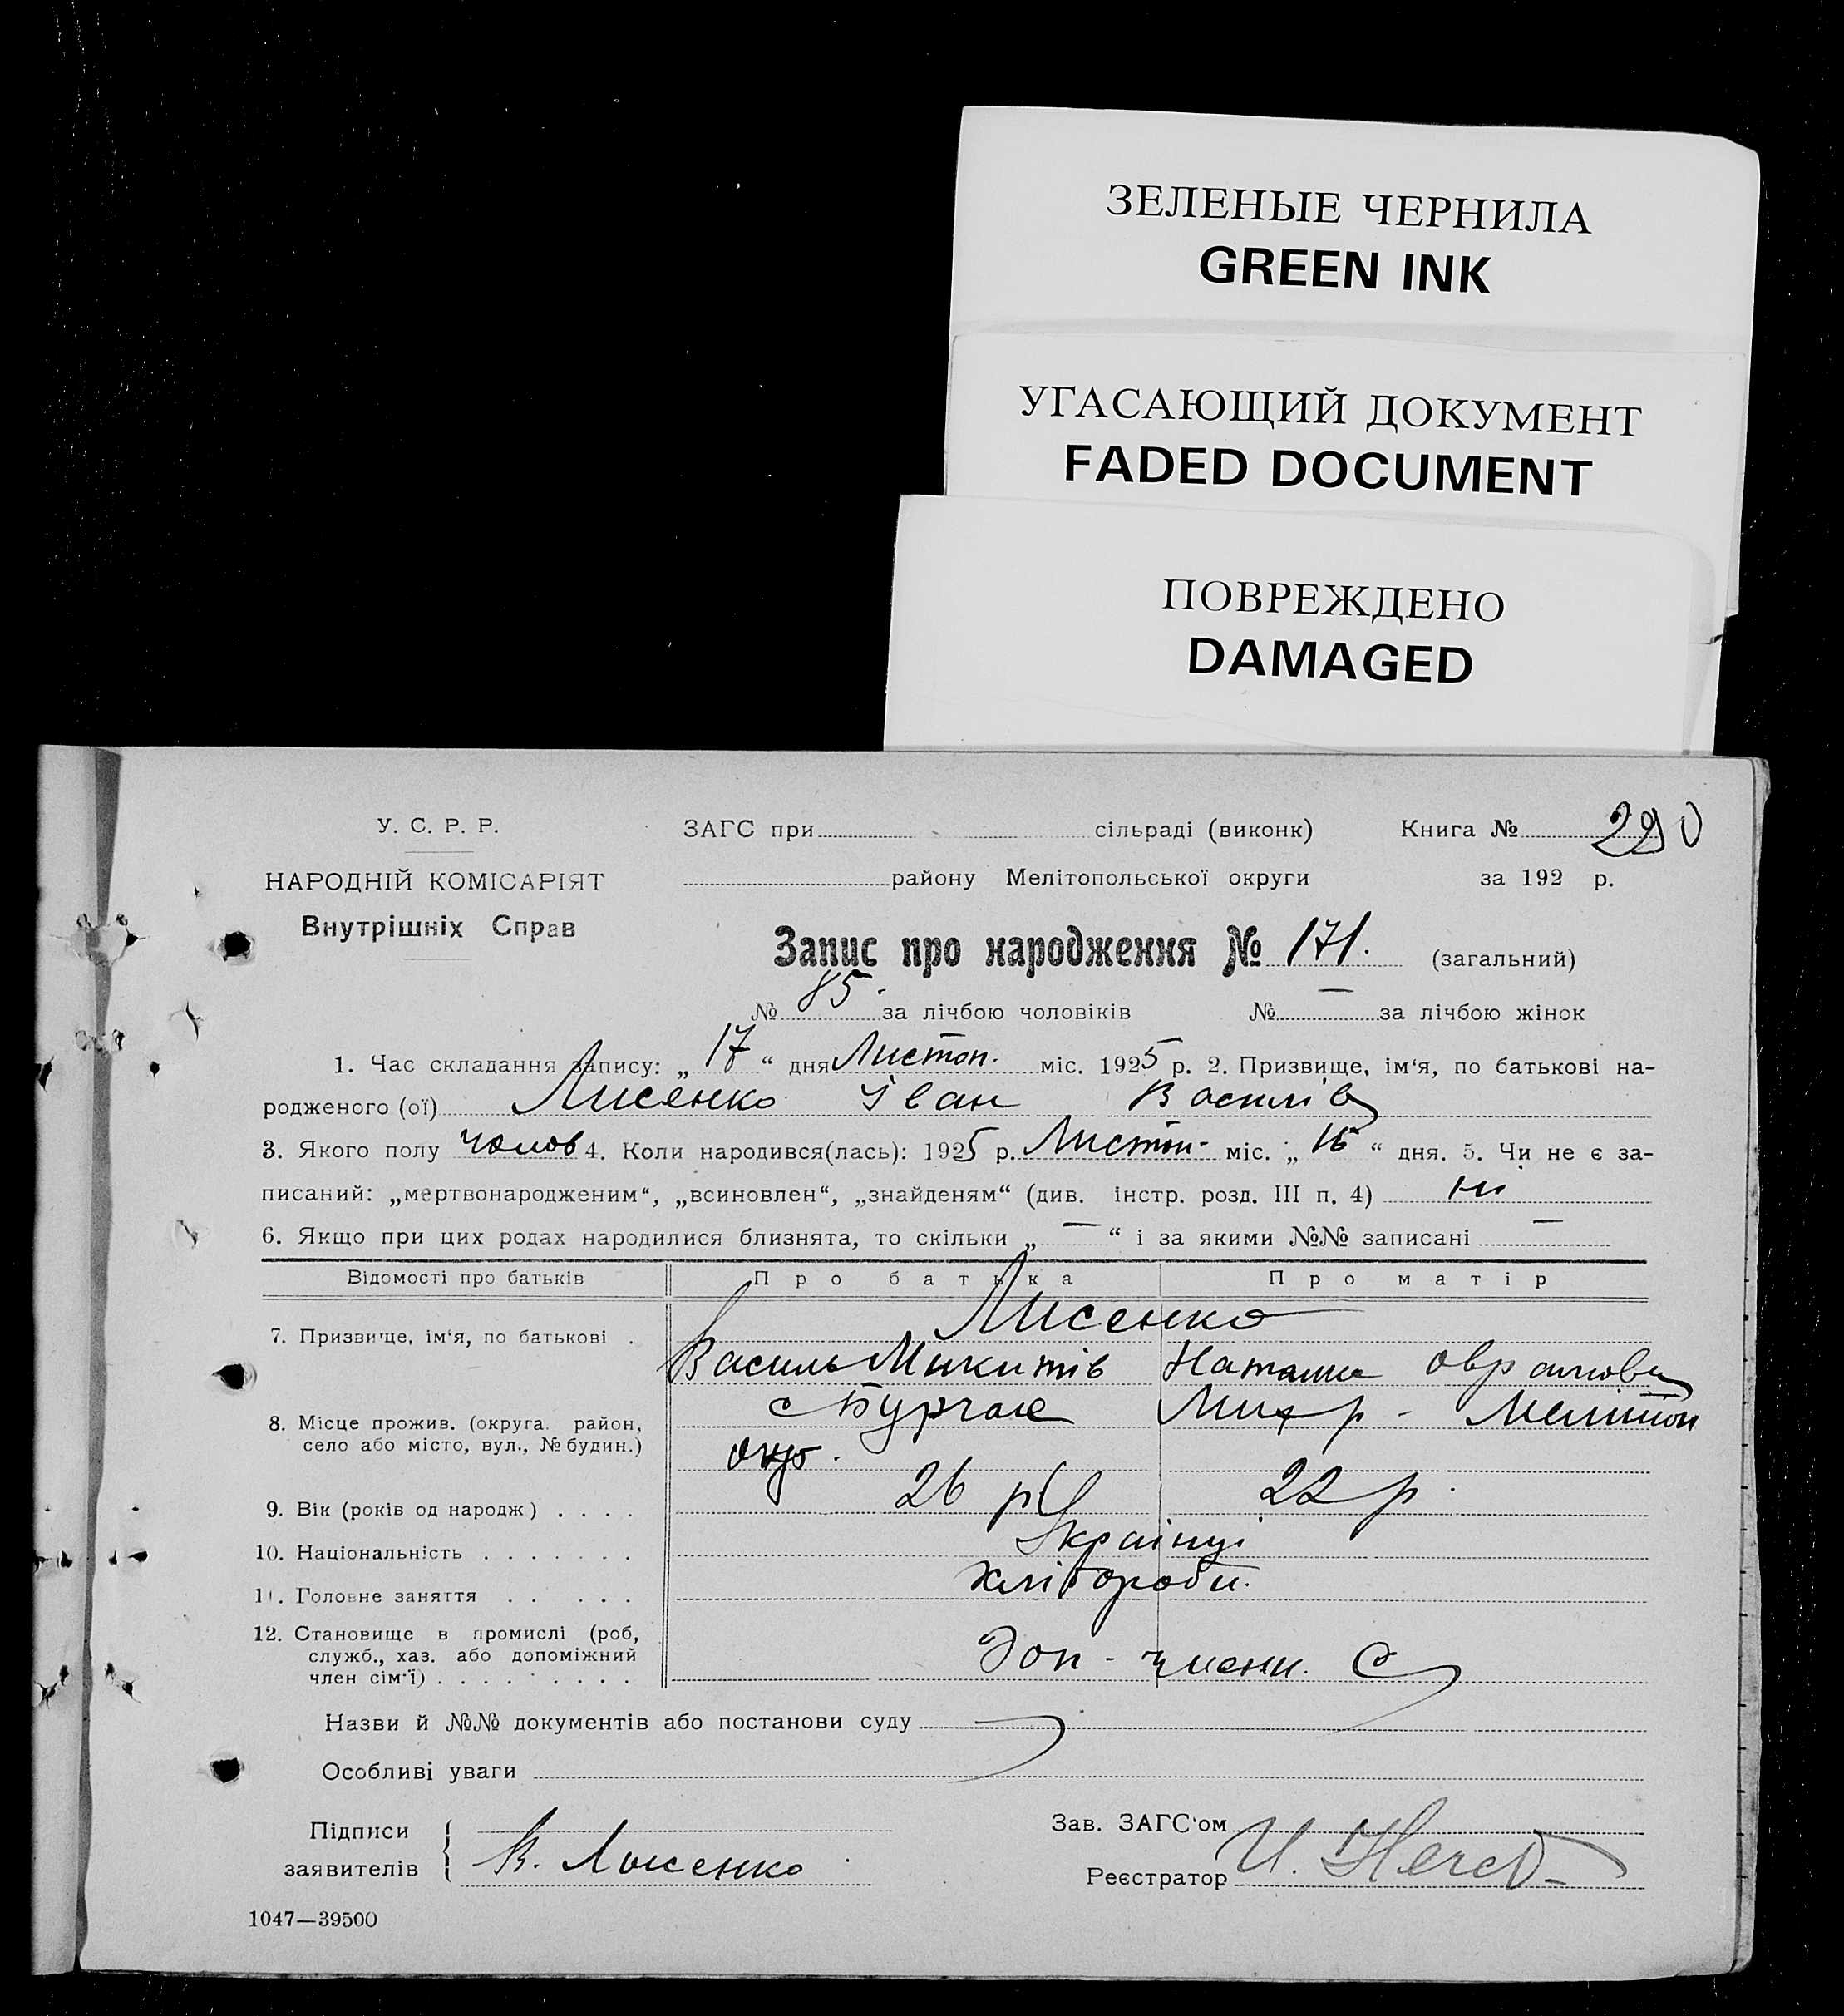 ЗЕЛЕНЫЕ ЧЕРНИЛА
GREEN INK
УГАСАЮЩИЙ ДОКУМЕНТ
FADED DOCUMENT
ПОВРЕЖДЕНО
DAMAGED
У. С. Р. Р. ЗАГС при сільраді (виконк) Книга № 290
НАРОДНІЙ КОМІСАРІЯТ району Мелітопольської округи за 192 р.
Внутрішніх Справ
Запис про народження № 171. (загальний)
№ 85. за лічбою чоловіків № — за лічбою жінок
1. Час складання запису: „ 17 “ дня Листоп. міс. 1925 р. 2. Призвище, ім‘я, по батькові на-
родженого (ої) Лисенко Іван Василів
3. Якого полу чолов 4. Коли народився(лась): 1925 р. Листоп- міс. „ 15 “ дня. 5. Чи не є за-
писаний: „мертвонародженим“, „всиновлен“, „знайденям“ (див. інстр. розд. III п. 4) ні
6. Якщо при цих родах народилися близнята, то скільки „ — “ і за якими №№ записані —
Відомості про батьків Про батька Про матір
Лисенко
7. Призвище, ім‘я, по батькові .
Василь Микитів Наталка
8. Місце прожив. (округа. район, с Бурчак Мих р - Мелітоп
село або місто, вул., № будин.)
окр.
9. Вік (років од народж) . . . . 26 р 22 р.
10. Національність . . . . . . . Українці
11. Головне заняття . . . . . хлібороби.
12. Становище в промислі (роб,
служб., хаз. або допоміжний Доп - члени. С
член сім‘ї) . . . . . . . . .
Назви й №№ документів або постанови суду
Особливі уваги
Підписи Зав. ЗАГС‘ом
заявителів В. Лисенко Реєстратор
1047—39500